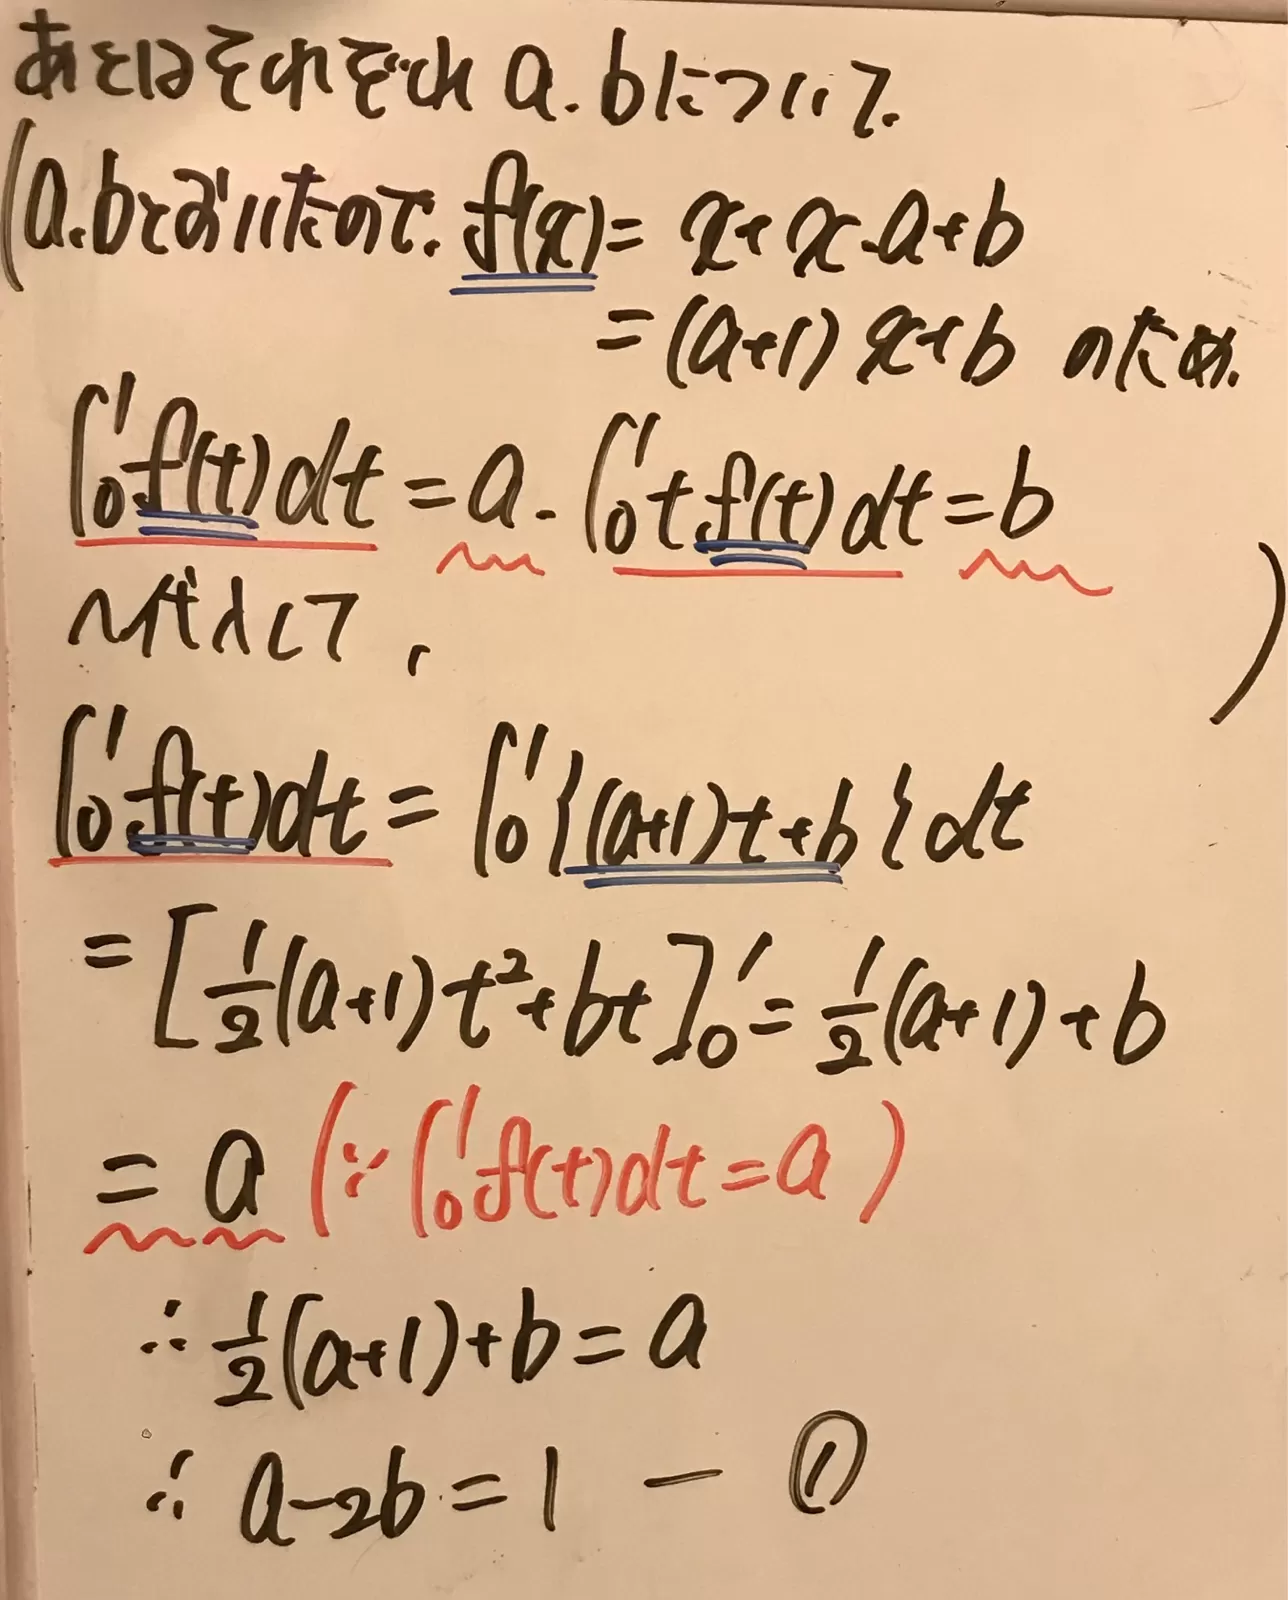 あとはそれぞれ a.bについて.
(a.bとおいたので. f(x)= x+x·a+b
=(a+1)x+b のため.
∫₀¹f(t)dt=a. ∫₀¹tf(t)dt=b
へ代入して, )
∫₀¹f(t)dt=∫₀¹{(a+1)t+b}dt
=[1/2(a+1)t²+bt]₀¹=1/2(a+1)+b
=a (∵∫₀¹f(t)dt=a)
∴1/2(a+1)+b=a
∴a-2b=1 — ①